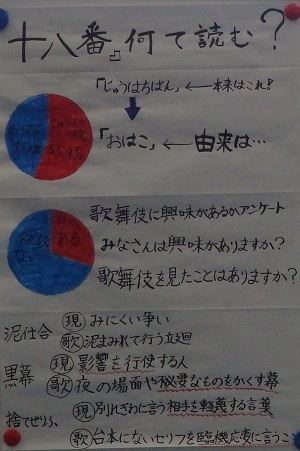 十八番』何て読む?
「じゅうはちばん」←本来はこれ!
「おはこ」←由来は…
歌舞伎に興味があるかアンケート
みなさんは興味がありますか?
歌舞伎を見たことはありますか?
ある
ない
泥仕合
現 みにくい争い
歌 泥まみれて行う立廻
黒幕
現 影響を行使する人
歌 夜の場面や秘要なものをかくす幕
捨てぜりふ
現 別れぎわに言う相手を軽蔑する言葉
歌 台本にないセリフを臨機応変に言うこ